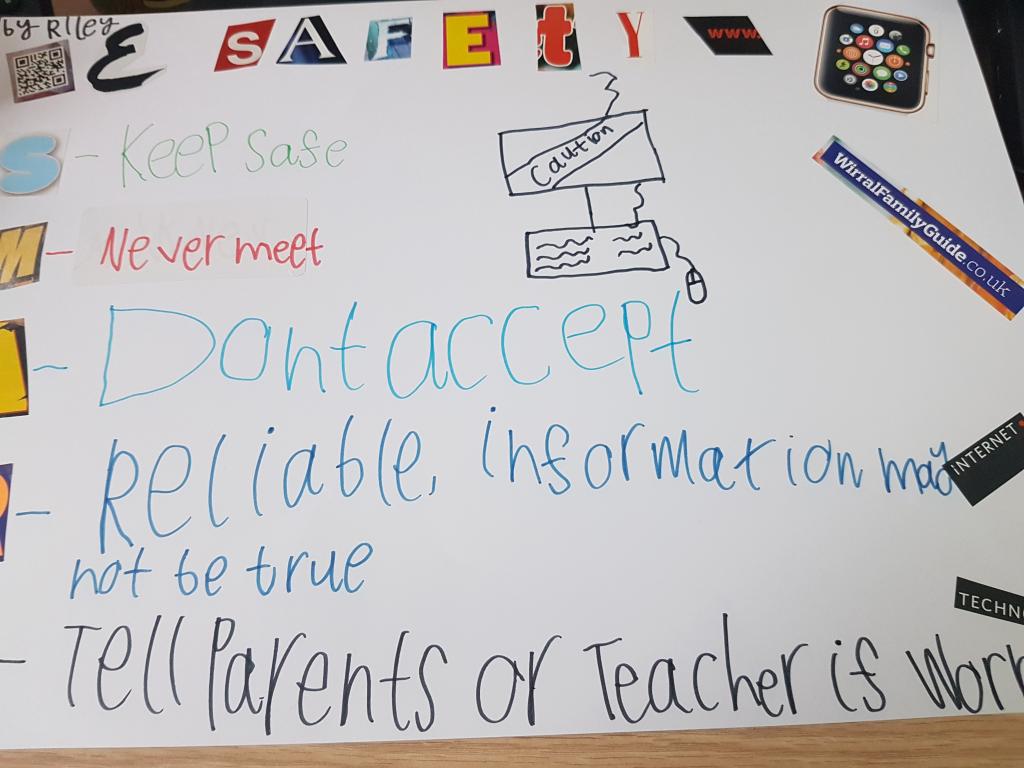 by-Riley
E SAFEtY www.
S - Keep safe
Caution
WirralFamilyGuide.co.uk
M - Never meet
- Dont accept
- Reliable, information may
INTERNET
not be true
TECHNO
- Tell Parents or Teacher if worr